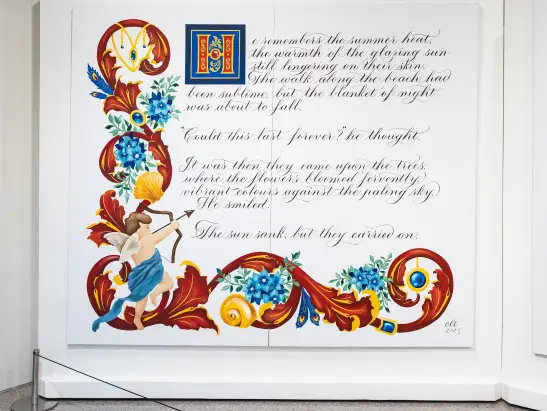 He remembers the summer heat,
the warmth of the glazing sun
still lingering on their skin.
The walk along the beach had
been sublime, but the blanket of night
was about to fall.
"Could this last forever?" he thought.
It was then they came upon the trees,
where the flowers bloomed fervently,
vibrant colours against the paling sky.
He smiled.
The sun sank, but they carried on.
2023